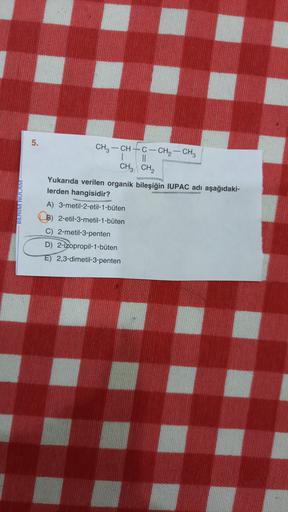 5.
CH₃ — CH — C — CH₂ — CH₃
| ||
CH₃ CH₂
Yukarıda verilen organik bileşiğin IUPAC adı aşağıdaki-
lerden hangisidir?
A) 3-metil-2-etil-1-büten
B) 2-etil-3-metil-1-büten
C) 2-metil-3-penten
D) 2-izopropil-1-büten
E) 2,3-dimetil-3-penten